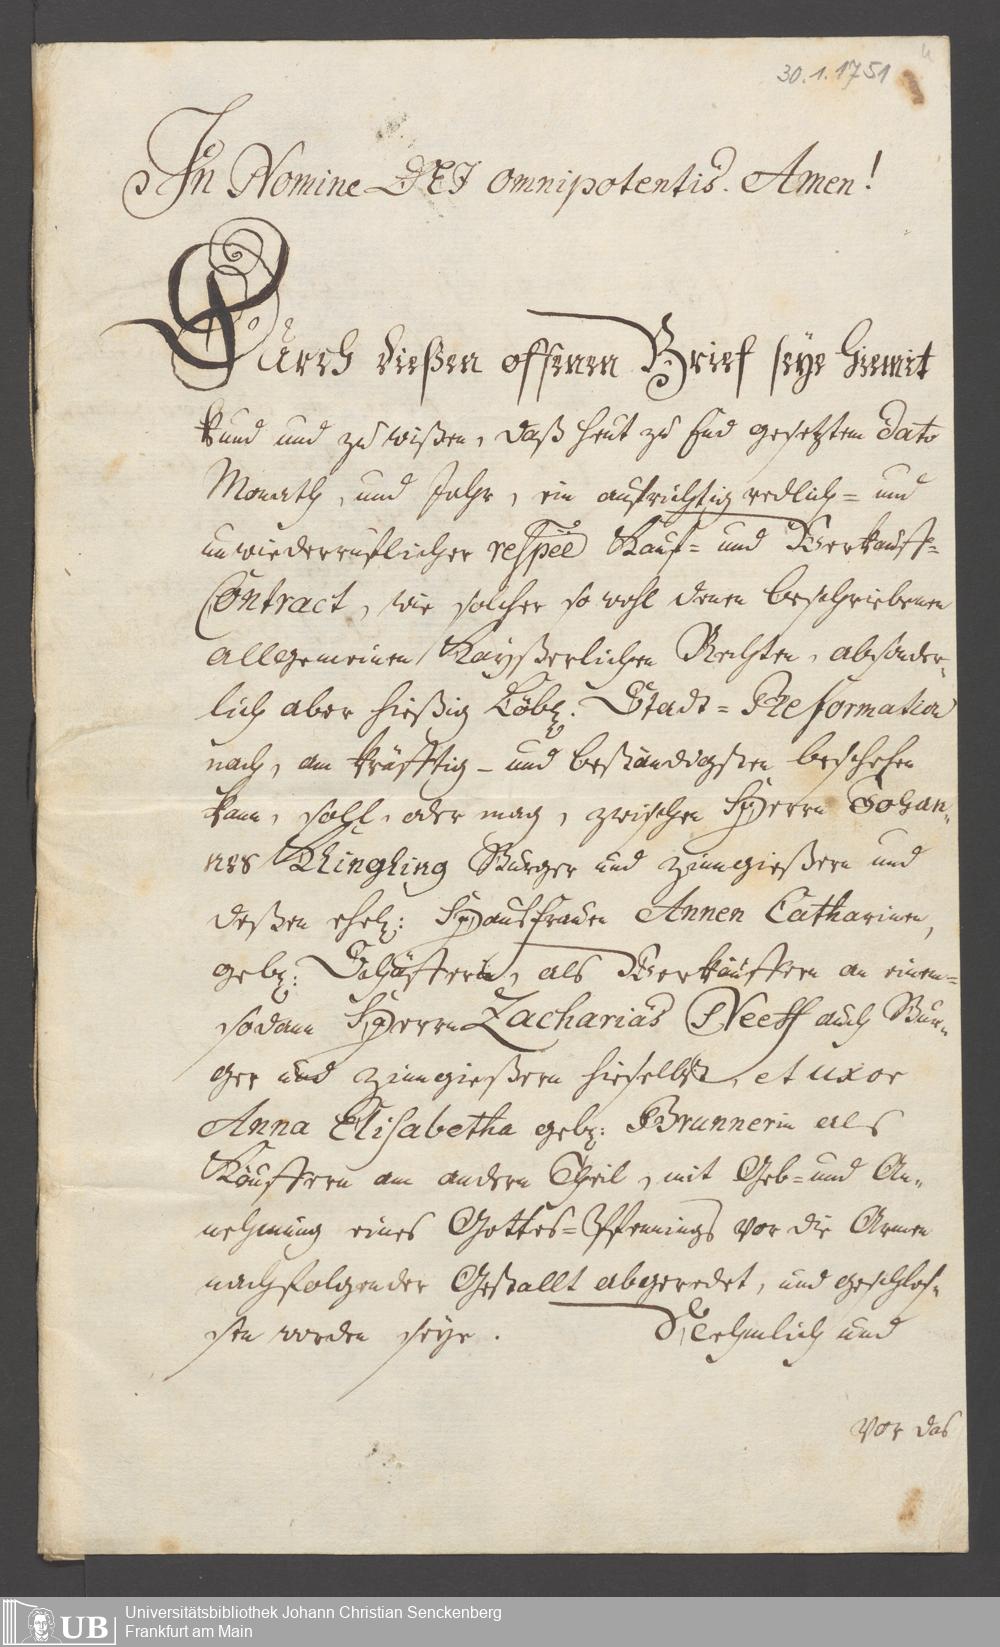 30.1.1751
4
In Nomine DEI omnipotentis. Amen!
Durch dießen offenen Brief seye hiemit
kund und zu wißen, daß heut zu End gesetztem Dato
Monath, und Jahr, ein aufrichtig redlich= und
unwiederruflicher respée Kauf= und Verkauff=
Contract, wie solcher so wohl denen beschriebenen
allgemeinen Kayßerlichen Rechten, absonder=
lich aber hießig Löbl: Stadt=Reformation
nach, am kräfftig= und beständigsten beschehen
kann, soll, oder mag, zwischen Herrn Johan=
nes Klingling Burger und Zinngießern und
deßen ehel: Haußfrauen Annen Catharinen,
geb: Schäfferin, als Verkäuffern an einem=
sodann Herrn Zacharias Neeff auch Bur=
ger und Zinngießern hieselbst, et uxor
Anna Elisabetha geb: Brunnerin als
Käuffern am andern Theil, mit Geb= und An=
nehmung eines Gottes=Pfennings vor die Armen
nachfolgender Gestallt abgeredet, und geschlos=
sen worden seye. Nehmlich und
vor das
UB
Universitätsbibliothek Johann Christian Senckenberg
Frankfurt am Main